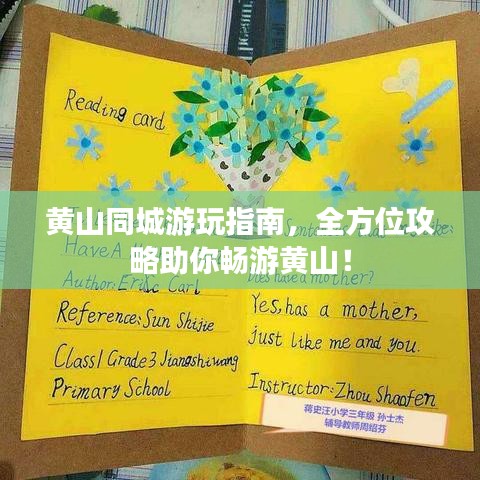 Reading card
黄山同城游玩指南，全方位攻
略助你畅游黄山！
Have A
Author: Eric Carl
Reference: Sun Shijie
Class1 Grade3 Jiangshiwang
Primary School
Yes, has a mother,
just like me and you.
Instructor: Zhou Shaofen
蒋史汪小学三年级 孙士杰
辅导教师周绍芬